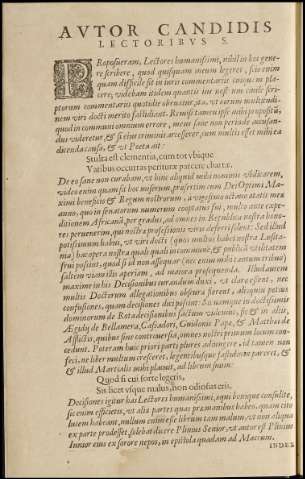 AVTOR CANDIDIS
LECTORIBVS S.
Roposueram, Lectores humanissimi, nihil in hoc gene-
re scribere, quod quisquam meum legeret, scio enim
quam difficile sit in iuris commentariis cuiquam pla-
cere, videbam itidem quantis ius nostrum caulè scri-
ptorum commentariis quotidie obruatur,
nem viri docti meritò fastidiant. Et nisi tamen ipse mihi proposui,
quod in communi omnium errore, meus sane non periculè accusan-
dus videretur, & si eius criminis arcesserer, cum multis esset mihi ea
dicenda causa, & vt Poeta ait:
Stulta est clementia, cum tot vbique
Vatibus occurras periturae parcere chartae.
De eo sane non curabam, vt hinc aliquid mihi nominis vĕdicarem,
video enim quam sit hoc miserum, praesertim cum Dei Optimi Ma-
ximi beneficio & Regum nostrorum, a vigesimo octauo aetatis meae
anno, quo in senatorum numerum cooptatus fui, multo ante expe-
ditionem Africanā, per gradus, ad omnes in Republica nostra hono-
res peruenerim, qui nostrae professionis viris deferri solent. Sed illud
potissimum habui, vt viri docti (quos multos habet nostra Lusita-
nia) hac opera nostra quali quali in commune, & publica vtilitatem
frui possint, quod si id non assequar (nec enim mihi tantum tribuo)
saltem viam illis aperiam, ad maiora prosequenda. Illud autem
maxime in his Decisionibus curandum duxi, vt clare essent, nec
multis Doctorum allegationibus obscurae fierent, aliquin potius
confusiones, quam decisiones dici possent. Sic namque in doctissimis
dominorum de Rota decisionibus factum videmus, sic & in aliis,
Ægidii de Bellamera, Cassadori, Guidonis Papae, & Matthaei de
Afflictis, quibus sine controuersia, omnes nostri primum locum con-
cedunt. Poteram huic priori parti plures adiungere, id tamen non
feci, ne liber multum cresceret, legentibusque fastidium pareret, &
& illud Martialis mihi placuit, ad librum suum:
Quod si cui forte legeris,
Sis licet vsque malus, non odiosus eris.
Decisiones igitur has Lectores humanissimi, aequi bonique consulite,
sic enim efficietis, vt alia partes quas prae manibus habeo, quam cito
lucem habeant, nullum enim esse librum tam malum, vt non aliqua
ex parte prodesset, solebat dicere Plinius Senior, vt autor est Plinius
Iunior eius ex sorore nepos, in epistola quadam ad Macrum.
INDEX